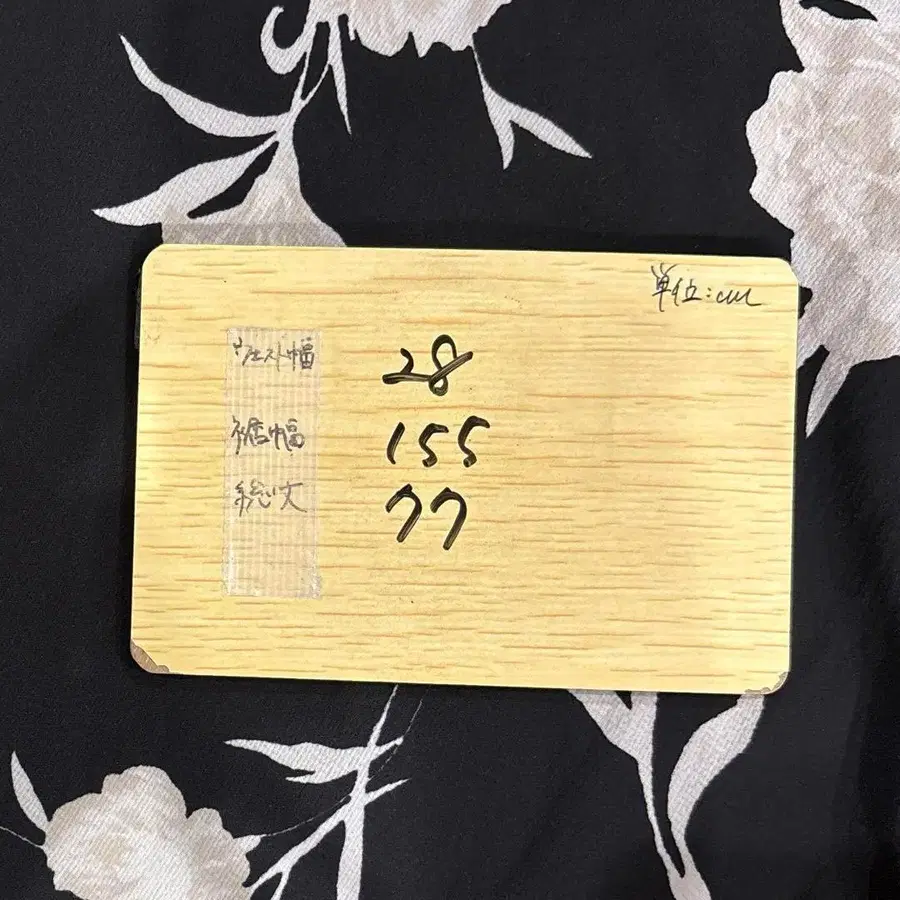 単位:cm
ウエスト幅 28
裾幅 155
総丈 77